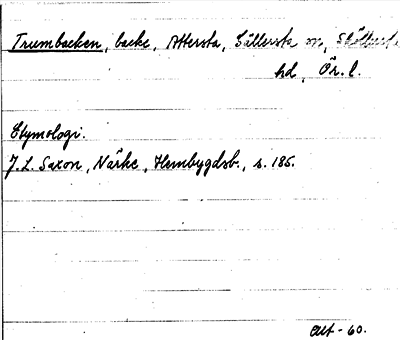 Trumbacken, backe, Attersta, Gällersta sn,
hd, Ör. l.
Etymologi.
J. L. Saxon, Närke, Hembygdsb., s. 185.
-60.